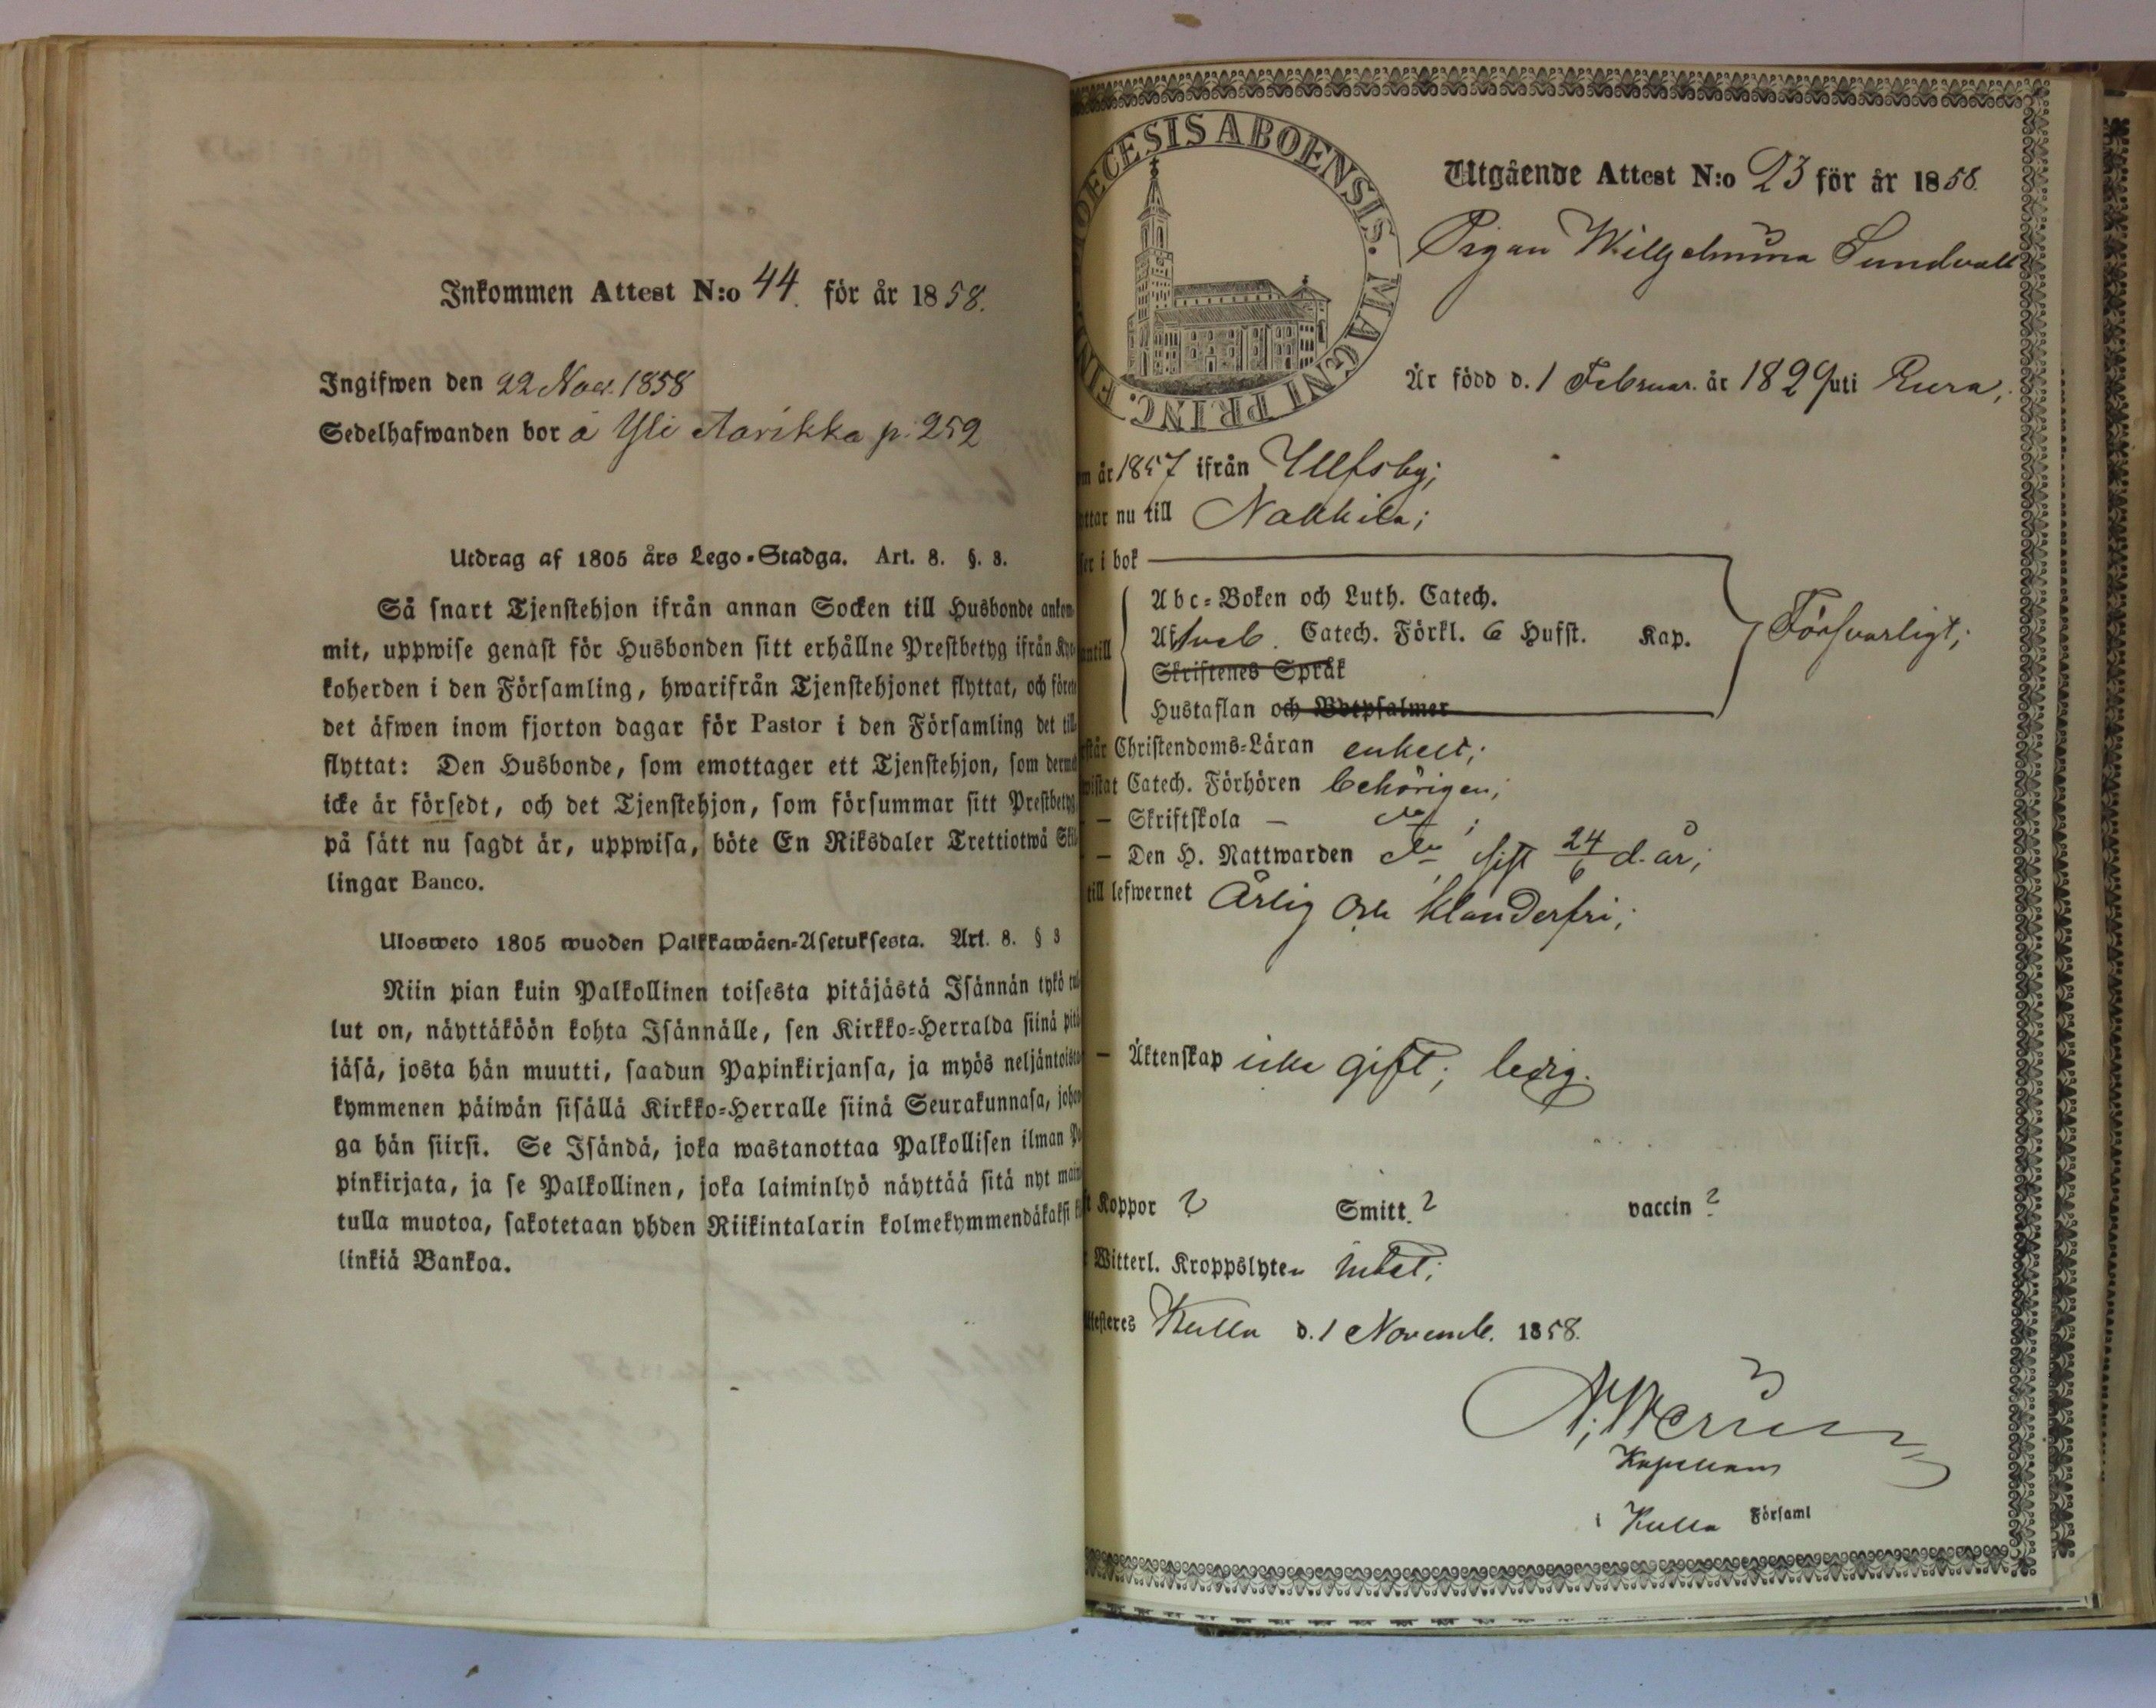 Inkommen Attest N:o 44. för år 1858.
Ingifwen den 22 Nov. 1858
Sedelhafwanden bor å Yli Aarikka p. 252
Utdrag af 1805 års Lego-Stadga. Art. 8. §. 3.
Så snart Tjenstehjon ifrån annan Socken till Husbonde ankom
mit, uppwise genast för Husbonden sitt erhållne Prestbetyg ifrån Kyr
koherden i den Församling, hwarifrån Tjenstehjonet flyttat, och förete
det äfwen inom fjorton dagar för Pastor i den Församling det till
flyttat: Den Husbonde, som emottager ett Tjenstehjon, som dermed
icke är försedt, och det Tjenstehjon, som försummar sitt Prestbetyg
på sätt nu sagdt är, uppwisa, böte En Riksdaler Trettiotwå Skil
lingar Banco.
Ulosweto 1805 wuoden Palkkawäen-Asetuksesta. Art. 8. § 3
Niin pian kuin Palkollinen toisesta pitäjästä Isännän tykö tul
lut on, näyttäköön kohta Isännälle, sen Kirkko-Herralda siinä pitä
jäsä, josta hän muutti, saadun Papinkirjansa, ja myös neljäntoista
kymmenen päiwän sisällä Kirkko-Herralle siinä Seurakunnasa, johon
ga hän siirsi. Se Isändä, joka wastanottaa Palkollisen ilman Pa
pinkirjata, ja se Palkollinen, joka laiminlyö näyttää sitä nyt main
tulla muotoa, sakotetaan yhden Riikintalarin kolmekymmendäkaksi kil
linkiä Bankoa.
DIOECESIS ABOENSIS. MAGNI PRINC. FIN
Utgående Attest N:o 23 för år 1858.
Pigan Wilhelmina Sundvall
Är född d. 1 Februar. år 1829 uti Eura,
m år 1857 ifrån Ulfsby;
ttar nu till Nakkila;
ser i bok
Abc-Boken och Luth. Catech.
Catech. Förkl. 6 Hufst. Kap.
antill
Försvarligt;
Skriftenes Språk
Hustaflan och Botpsalmer
rstår Christendoms-Läran enkelt;
wistat Catech. Förhören behörigen;
— Skriftskola — do ;
— Den H. Nattwarden do, sist 24/6 d. år;
till lefwernet Ärlig och klanderfri;
— Äktenskap icke gift; ledig.
t Koppor ? Smitt. ? vaccin ?
Witterl. Kroppslyten intet;
ttesteres Kulla d. 1 Novemb. 1858.
Kapellan
i Kulla Församl